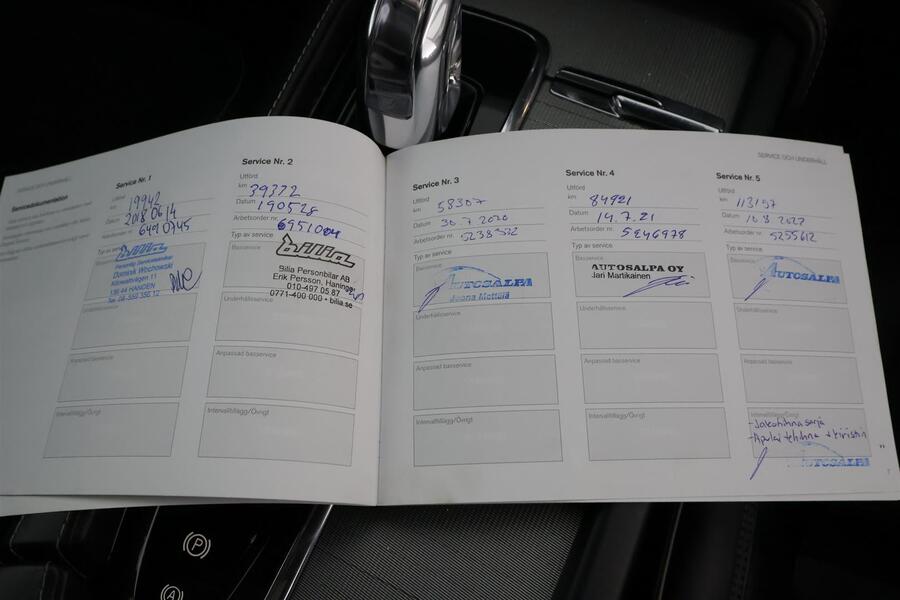 Servicedokumentation
Service Nr. 1
Utförd
km 19942
Datum 2018 06 14
Arbetsorder nr. 6401 0745
Typ av service
bilia
Personlig Servicetekniker
Dominik Wochowski
136 44 HANDEN
Underhållsservice
Anpassad basservice
Intervalltillägg/Övrigt
Service Nr. 2
Utförd
km 39322
Datum 190528
Arbetsorder nr. 6951004
Typ av service
Basservice
bilia
Bilia Personbilar AB
Erik Persson, Haninge
010-497 05 87
0771-400 000 • bilia.se
Underhållsservice
Anpassad basservice
Intervalltillägg/Övrigt
SERVICE OCH UNDERHÅLL
Service Nr. 3
Utförd
km 58307
Datum 30.7.2020
Arbetsorder nr. 5238532
Typ av service
Basservice
AUTOSALPA
Joona Mottölä
Underhållsservice
Anpassad basservice
Intervalltillägg/Övrigt
Service Nr. 4
Utförd
km 84921
Datum 14.7.21
Arbetsorder nr. 5246978
Typ av service
Basservice
AUTOSALPA OY
Jari Martikainen
Underhållsservice
Anpassad basservice
Intervalltillägg/Övrigt
Service Nr. 5
Utförd
km 113197
Datum 10.8.2022
Arbetsorder nr. 5255612
Typ av service
Basservice
AUTOSALPA
Underhållsservice
Anpassad basservice
Intervalltillägg/Övrigt
-Jakohihnasarja
-Apulaitehihna + kiristin
AUTOSALPA
7
P
A